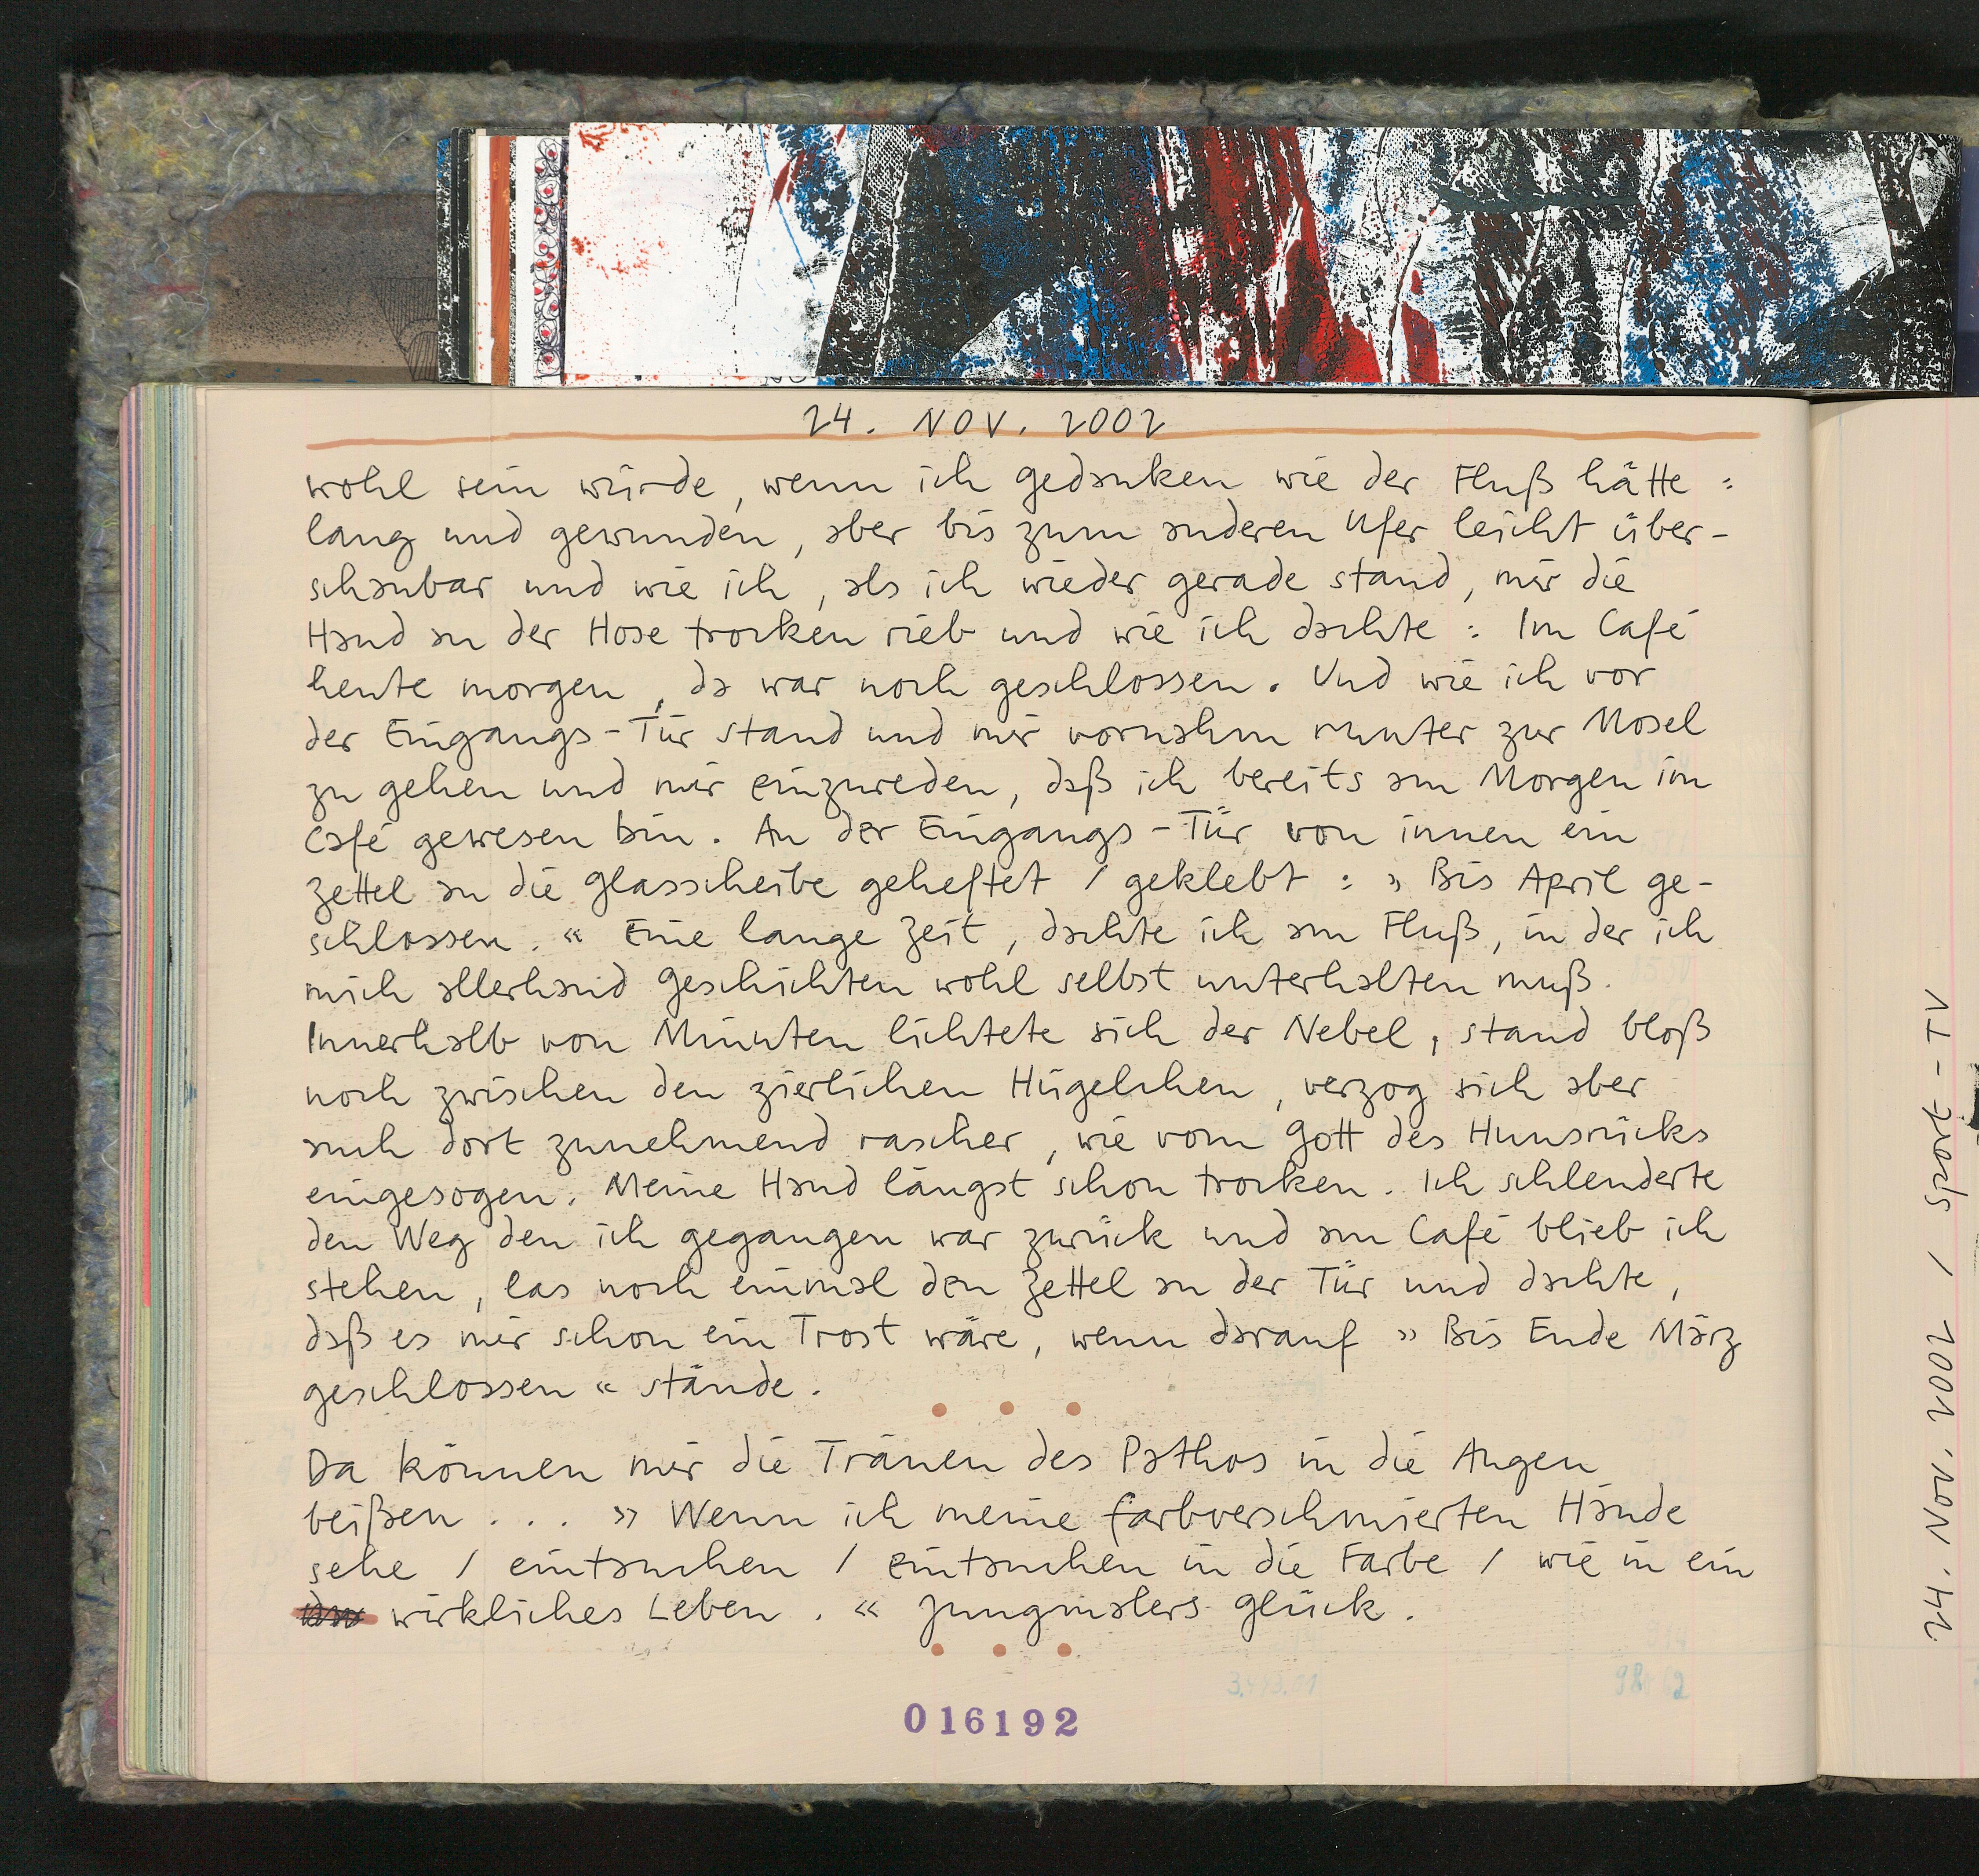 24. NOV. 2002
wohl sein würde, wenn ich Gedanken wie der Fluß hätte :
lang und gewunden, aber bis zum anderen Ufer leicht über-
schaubar und wie ich, als ich wieder gerade stand, mir die
Hand an der Hose trocken rieb und wie ich dachte : Im Café
heute morgen, da war noch geschlossen. Und wie ich vor
der Eingangs-Tür stand und mir vornahm runter zur Mosel
zu gehen und mir einzureden, daß ich bereits am Morgen im
Café gewesen bin. An der Eingangs-Tür von innen ein
Zettel an die Glasscheibe geheftet / geklebt : » Bis April ge-
schlossen. « Eine lange Zeit, dachte ich am Fluß, in der ich
mich allerhand Geschichten wohl selbst unterhalten muß.
Innerhalb von Minuten lichtete sich der Nebel, stand bloß
noch zwischen den zierlichen Hügelchen, verzog sich aber
auch dort zunehmend rascher, wie vom Gott des Hunsrücks
eingesogen. Meine Hand längst schon trocken. Ich schlenderte
den Weg den ich gegangen war zurück und am Café blieb ich
stehen, las noch einmal den Zettel an der Tür und dachte,
daß es mir schon ein Trost wäre, wenn darauf » Bis Ende März
geschlossen « stände.
Da können mir die Tränen des Pathos in die Augen
beißen . . . » Wenn ich meine farbverschmierten Hände
sehe / eintauchen / eintauchen in die Farbe / wie in ein
wirkliches Leben. « Jungmalers Glück.
016192
24. Nov. 2002 / Sport-TV